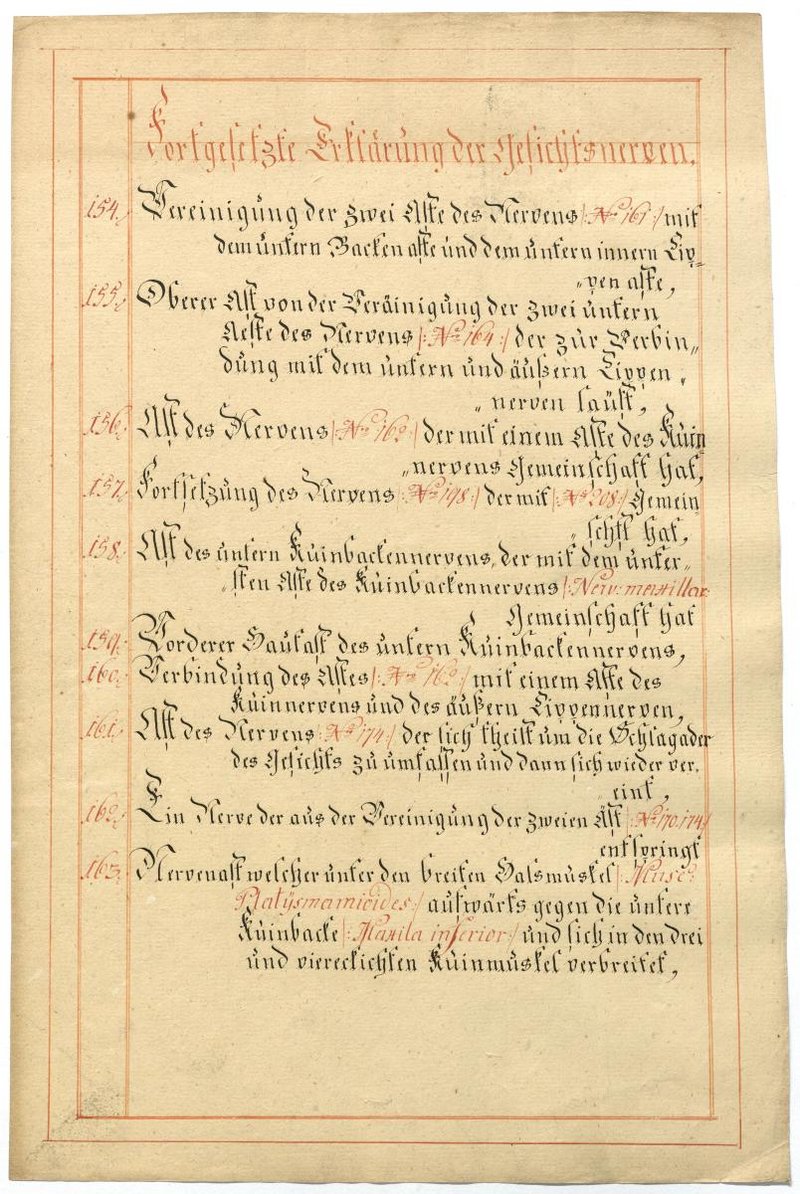 Fortgesetzte Erklärung der Gesichtsnerven.
154. Vereinigung der zwei Äste des Nervens |: No 161 :| mit
dem untern Backen aste und dem untern innern Lip„
„pen aste,
155. Oberer Ast von der Veräinigung der zwei untern
Aeste des Nervens |: No 164 :| der zur Verbin„
dung mit dem untern und äußern Lippen„
„nerven läuft,
156. Ast des Nervens |: No 162 :| der mit einem Aste des Kuin
„nervens Gemeinschaft hat,
157. Fortsetzung des Nervens |: No 198 :| der mit |: No 208 :| Gemein
„schft hat,
158. Ast des untern Kuinbackennervens, der mit dem unter„
„sten Aste des Kuinbackennervens |: Nerv: maxillar:
Gemeinschaft hat
159. Vorderer Hautast des untern Kuinbackennervens,
160. Verbindung des Astes |: No 162 :| mit einem Aste des
Kuinnervens und des äußern Lippennerven,
161. Ast des Nervens |: No 174 :| der sich theilt um die Schlagader
des Gesichts zu umfassen und dann sich wieder ver„
„eint,
162. Ein Nerve der aus der Vereinigung der zweien Äst |: No 170. 174 :|
entspringt
163. Nervenast welcher unter den breiten Halsmuskel |: Musc:
Platysmamioides :| aufwärts gegen die untere
Kuinbacke |: Maxila inferior :| und sich in den drei
und viereckichten Kuinmuskel verbreitet,